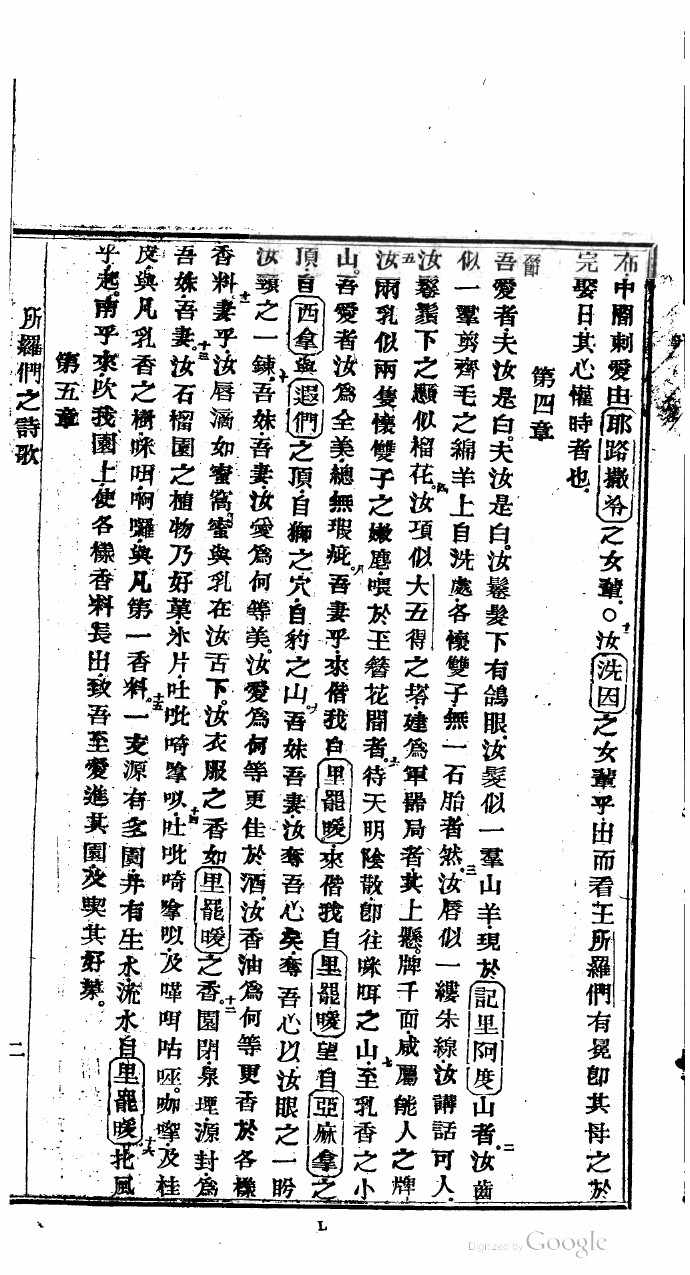 布中間刺愛由耶路撒冷之女輩○十一汝洗因之女輩乎出而看王所羅們有冕即其母之於
完娶日其心懽時者也
第四章
節
吾愛者夫汝是白夫汝是白汝鬆髮下有鴿眼汝髮似一羣山羊現於記里阿度山者二汝齒
似一羣剪齊毛之綿羊上自洗處各懷雙子無一石胎者然三汝唇似一縷朱線汝講話可人
汝鬆鬚下之顋似榴花四汝項似大五得之塔建為軍器局者其上懸牌千面咸屬能人之牌
五汝兩乳似兩隻懷雙子之嫩麞喂於王簪花間者六待天明陰散即往咪咡之山至乳香之小
山七吾愛者汝為全美總無瑕疵八吾妻乎來偕我自里罷暖來偕我自里罷暖望自亞麻拿之
頂自西拿與遐們之頂自獅之穴自豹之山九吾妹吾妻汝奪吾心矣奪吾心以汝眼之一盼
汝頸之一鍊十吾妹吾妻汝愛為何等美汝愛為何等更佳於酒汝香油為何等更香於各樣
香料十一妻乎汝唇滴如蜜窩蜜與乳在汝舌下汝衣服之香如里罷暖之香十二園閉泉堙源封為
吾妹吾妻十三汝石榴園之植物乃好菓氷片吐吡𠸄嗱㕥十四吐吡𠸄嗱㕥及嘩咡咕咥咖嚓及桂
皮與凡乳香之樹咪咡啊囉與凡第一香料十五一支源有多園井有生水流水自里罷暖十六北風
乎起南乎來吹我園上使各樣香料長出致吾至愛進其園及喫其好菓
第五章
所羅們之詩歌
二
L
Digitized by Google